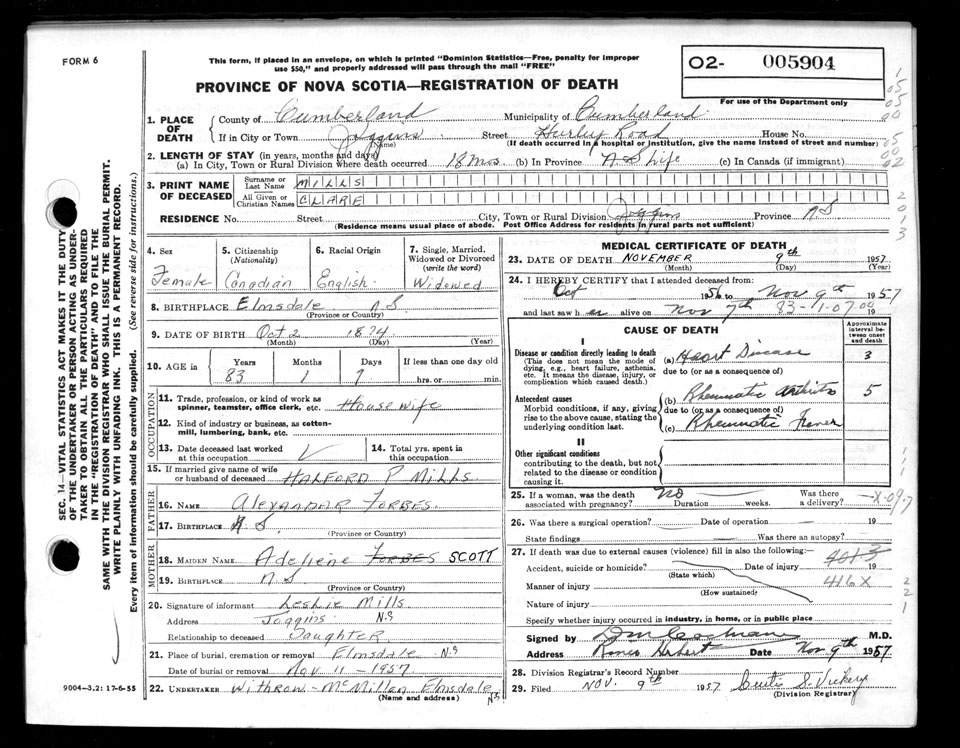 FORM 6
This form, if placed in an envelope, on which is printed "Dominion Statistics—Free, penalty for improper
use $50," and properly addressed will pass through the mail "FREE"
O2- 005904
For use of the Department only
PROVINCE OF NOVA SCOTIA—REGISTRATION OF DEATH
1. PLACE OF DEATH
County of Cumberland Municipality of Cumberland
If in City or Town Joggins Street Hurley Road House No.
(Name) (If death occurred in a hospital or institution, give the name instead of street and number)
2. LENGTH OF STAY (in years, months and days)
(a) In City, Town or Rural Division where death occurred 18 mos. (b) In Province N S Life (c) In Canada (if immigrant)
3. PRINT NAME OF DECEASED
Surname or Last Name MILLS
All Given or Christian Names CLARE
RESIDENCE No. Street City, Town or Rural Division Joggins Province N S
(Residence means usual place of abode. Post Office Address for residents in rural parts not sufficient)
4. Sex Female
5. Citizenship (Nationality) Canadian
6. Racial Origin English
7. Single, Married, Widowed or Divorced (write the word) Widowed
8. BIRTHPLACE Elmsdale N S
(Province or Country)
9. DATE OF BIRTH Oct 2 1874
(Month) (Day) (Year)
10. AGE in Years 83 Months 1 Days 7 If less than one day old hrs. or min.
OCCUPATION
11. Trade, profession, or kind of work as
spinner, teamster, office clerk, etc. House wife
12. Kind of industry or business, as cotton-
mill, lumbering, bank, etc.
13. Date deceased last worked at this occupation
14. Total yrs. spent in this occupation
15. If married give name of wife
or husband of deceased HALFORD P Mills
FATHER
16. NAME Alexander Forbes.
17. BIRTHPLACE N S
(Province or Country)
MOTHER
18. MAIDEN NAME Adeliene Forbes SCOTT
19. BIRTHPLACE N S
(Province or Country)
20. Signature of informant Leslie Mills
Address Joggins N.S
Relationship to deceased Daughter
21. Place of burial, cremation or removal Elmsdale N.S
Date of burial or removal Nov 11 - 1957
22. UNDERTAKER Withrow - McMillan Elmsdale NS
(Name and address)
MEDICAL CERTIFICATE OF DEATH
23. DATE OF DEATH NOVEMBER 9th 1957
(Month) (Day) (Year)
24. I HEREBY CERTIFY that I attended deceased from:
Oct 1956 to Nov 9th 1957
and last saw her alive on Nov 7th 83-11-07.00 19
CAUSE OF DEATH
Approximate interval between onset and death
I
Disease or condition directly leading to death
(This does not mean the mode of
dying, e.g., heart failure, asthenia,
etc. It means the disease, injury, or
complication which caused death.)
(a) Heart Disease 3
due to (or as a consequence of)
Antecedent causes
Morbid conditions, if any, giving
rise to the above cause, stating the
underlying condition last.
(b) Rheumatic Arthritis 5
due to (or as a consequence of)
(c) Rheumatic Fever
II
Other significant conditions
contributing to the death, but not
related to the disease or condition
causing it.
25. If a woman, was the death
associated with pregnancy? NO Duration weeks. Was there a delivery? -X-09.7
26. Was there a surgical operation? Date of operation 19
State findings Was there an autopsy?
27. If death was due to external causes (violence) fill in also the following:- 401-3
Accident, suicide or homicide? Date of injury 19
(State which)
Manner of injury 416X
(How sustained)
Nature of injury
Specify whether injury occurred in industry, in home, or in public place
Signed by M.D.
Address River Hebert Date Nov 9th 1957
28. Division Registrar's Record Number
29. Filed NOV. 9th 1957 Curtis S. Vickery
(Division Registrar)
SEC. 14—VITAL STATISTICS ACT MAKES IT THE DUTY
OF THE UNDERTAKER OR PERSON ACTING AS UNDER-
TAKER TO OBTAIN ALL THE PARTICULARS REQUIRED
IN THE "REGISTRATION OF DEATH" AND TO FILE THE
SAME WITH THE DIVISION REGISTRAR WHO SHALL ISSUE THE BURIAL PERMIT.
WRITE PLAINLY WITH UNFADING INK. THIS IS A PERMANENT RECORD.
Every item of information should be carefully supplied. (See reverse side for instructions.)
9004-3.2: 17-6-55